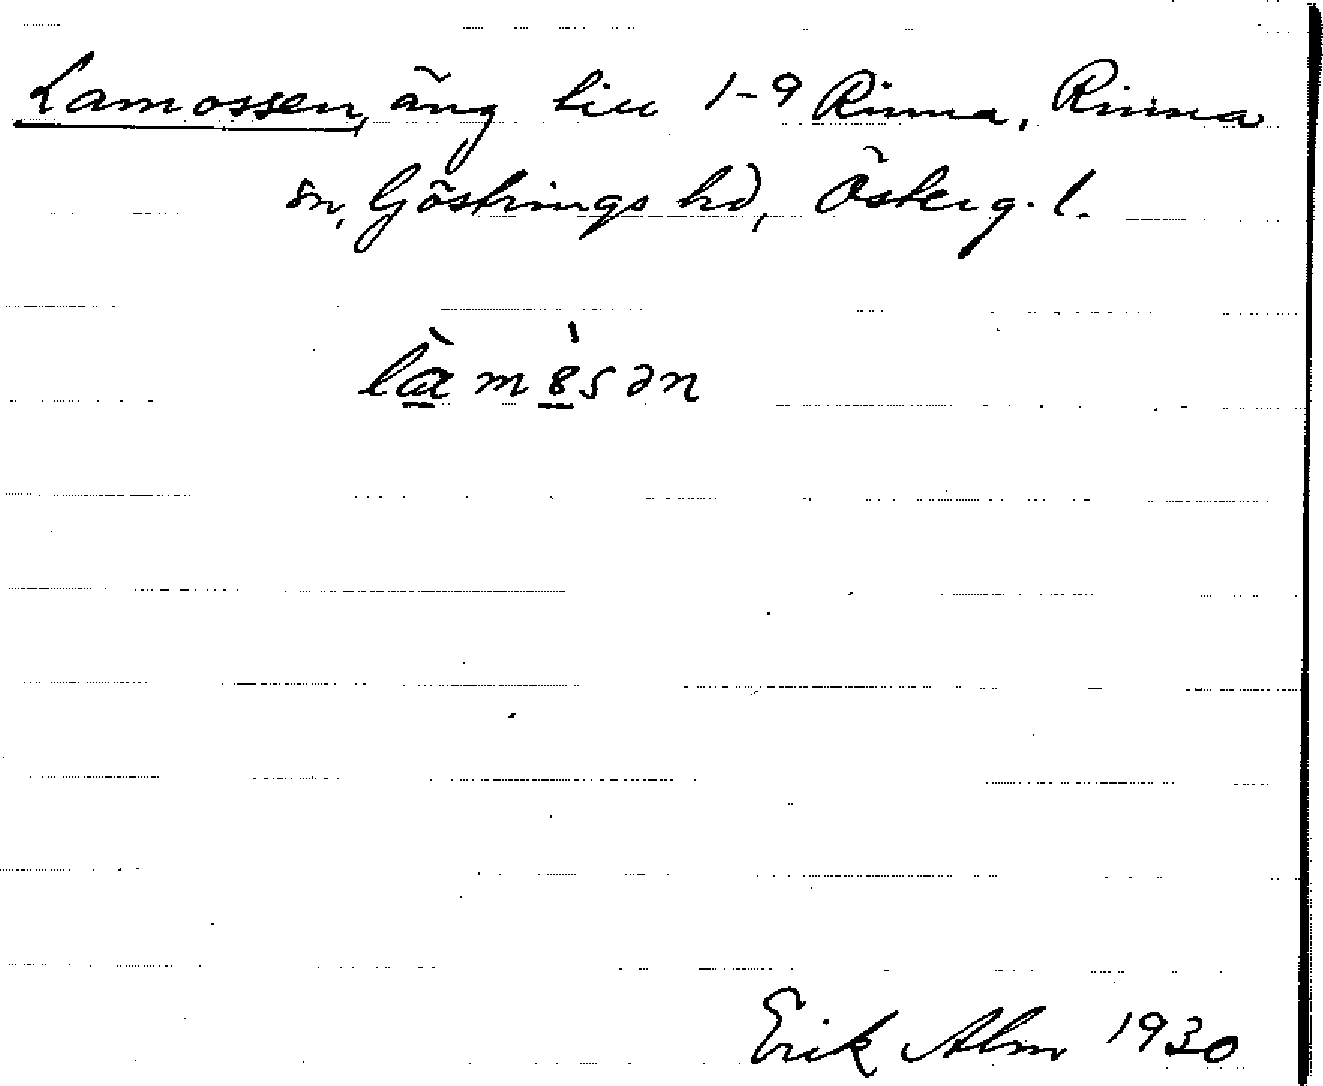 Lamossen, äng till 1-9 Rinna, Rinna
sn, Göstrings hd, Österg. l.
làm8́sən
Erik Alm 1930